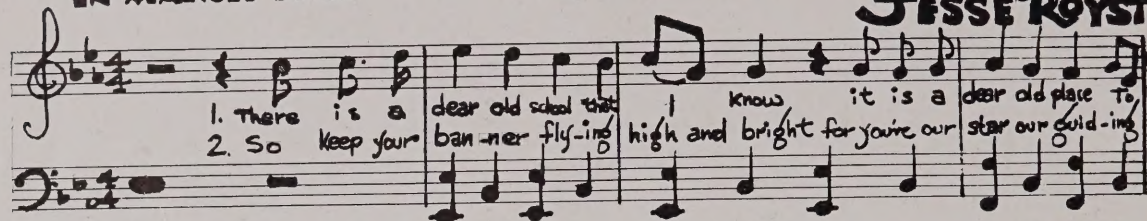 JESSE ROYST
1. There is a dear old school that I know it is a dear old place To
2. So keep your ban-ner fly-ing high and bright for you're our star our guid-ing